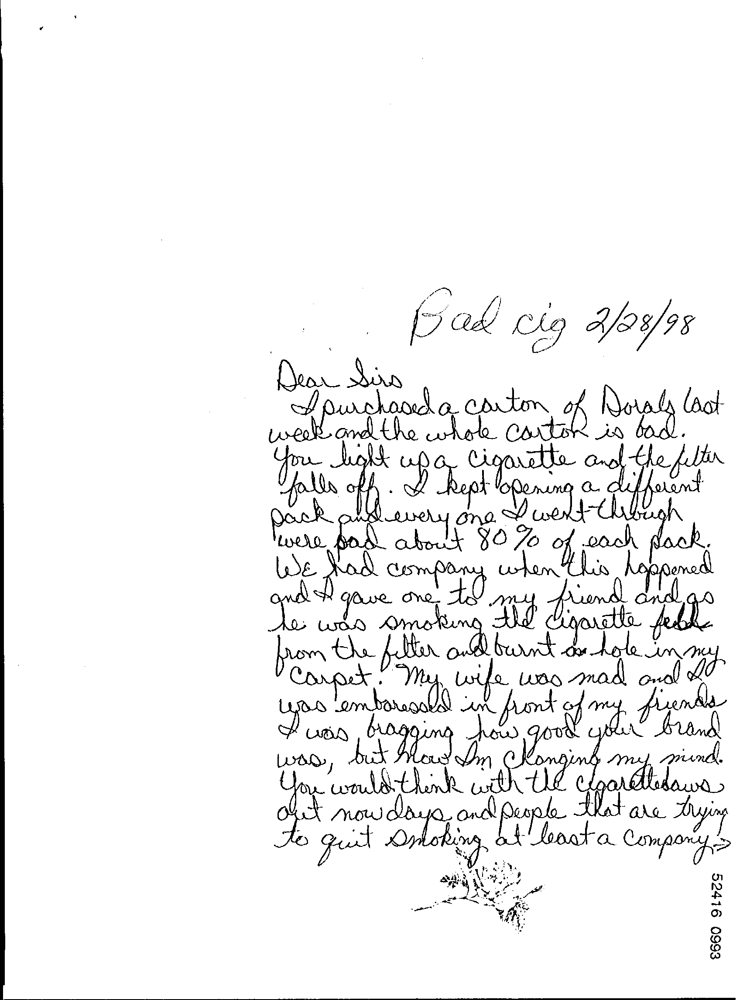 Bad cig 2/28/98
Dear Sirs
I purchased a carton of Dorals last
week and the whole carton is bad.
You light up a cigarette and the filter
falls off. I kept opening a different
pack and every one I went through
were bad about 80% of each pack.
We had company when this happened
and I gave one to my friend and as
he was smoking the cigarette fell
from the filter and burnt a hole in my
carpet. My wife was mad and I
was embaressed in front of my friends
I was bragging how good your brand
was, but now Im changing my mind.
You would think with the cigarette laws
out now days and people that are trying
to quit smoking at least a company →
52416 0993